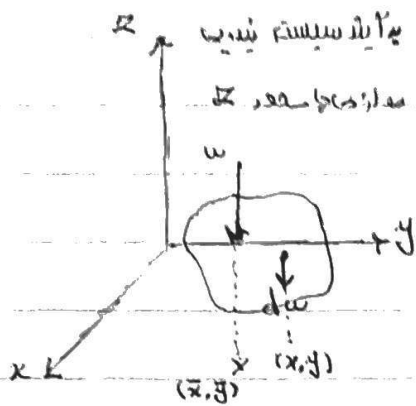 Z
برآیند سیستم نیروی
موازی با محور Z
w
y
dw
x
(x̄, ȳ)
(x, y)